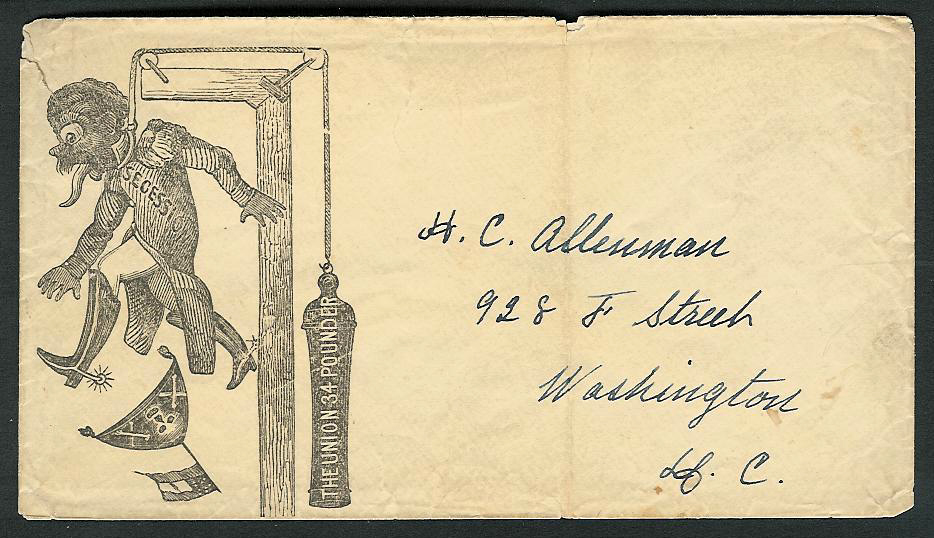 SECESS
THE UNION 34 POUNDER
H. C. Allenman
928 F Street
Washington
D. C.